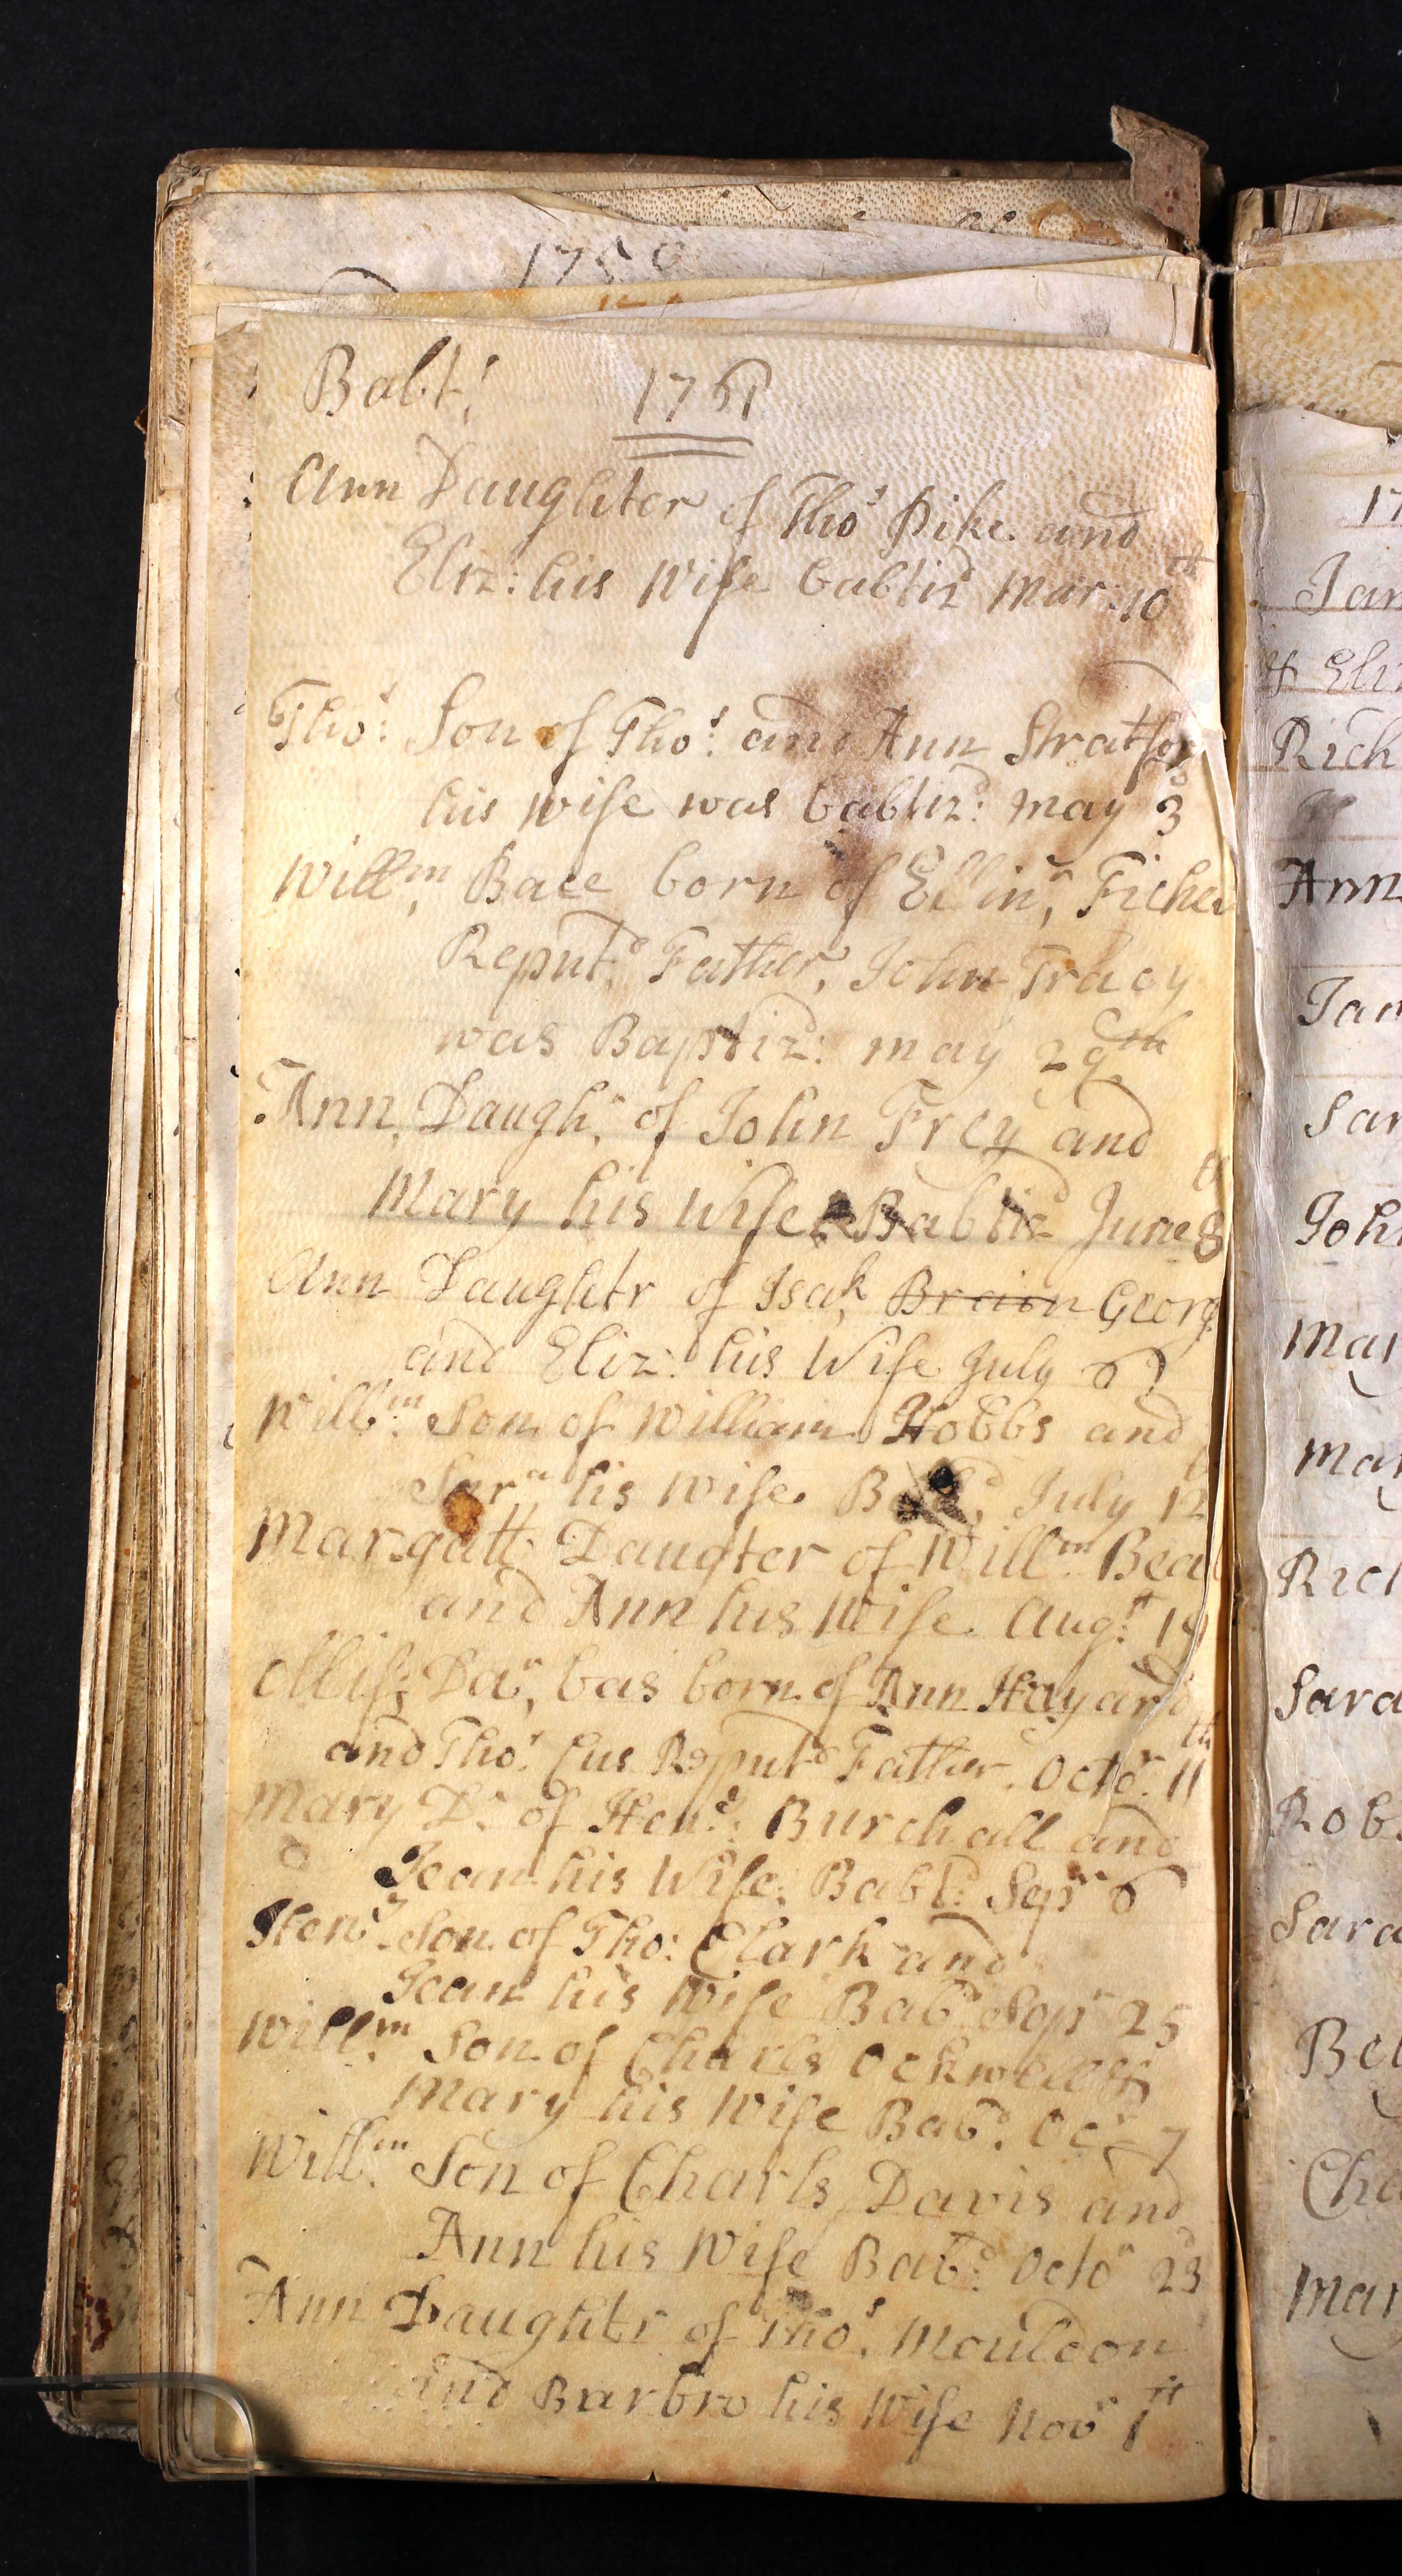 1750
Babt. 1761
Ann Daughter of Thos Pike and
Eliz: his Wife babtizd Mar: 10th
Thos: Son of Thos: and Ann Stratfor
his wife was babtizd: may 3d
Willm, Bace born of Elinr,
Reputd Father, John Tracy
was Baptizd: may 29th
Ann, Daughr, of John Frey and
Mary his Wife Babtizd June 8th
Ann Daughtr of Isak, Brain Georg
and Eliz: his Wife July 6
Willm: Son of William Hobbs and
Sara his wife July 12
Margatt Daugter of Willm Bea
and Ann his Wife. Augst: 19
Dar, bas born of Ann Hayard
and Thos: Reputd Father. Octor: 11th
Mary Dr of Heny: Burchall and
Jean his Wife: Babtd: Sepr 6
Heny. Son of Tho: Clark and
Jean his Wife Babd Sepr 25
Willm: Son of Charls Ockwell &
Mary his Wife Babd: Ocr 7
Willm: Son of Charls, Davis and
Ann his Wife Babd: Octor 23d
Ann Daughtr of Thos, Mouldon
and Barbro his Wife Novr 1st
17
Jan
& Eliz
Rich
Ann
Jam
Sar
Joh
Mar
Mar
Rich
Sara
Rob
Sara
Bet
Cha
Mar